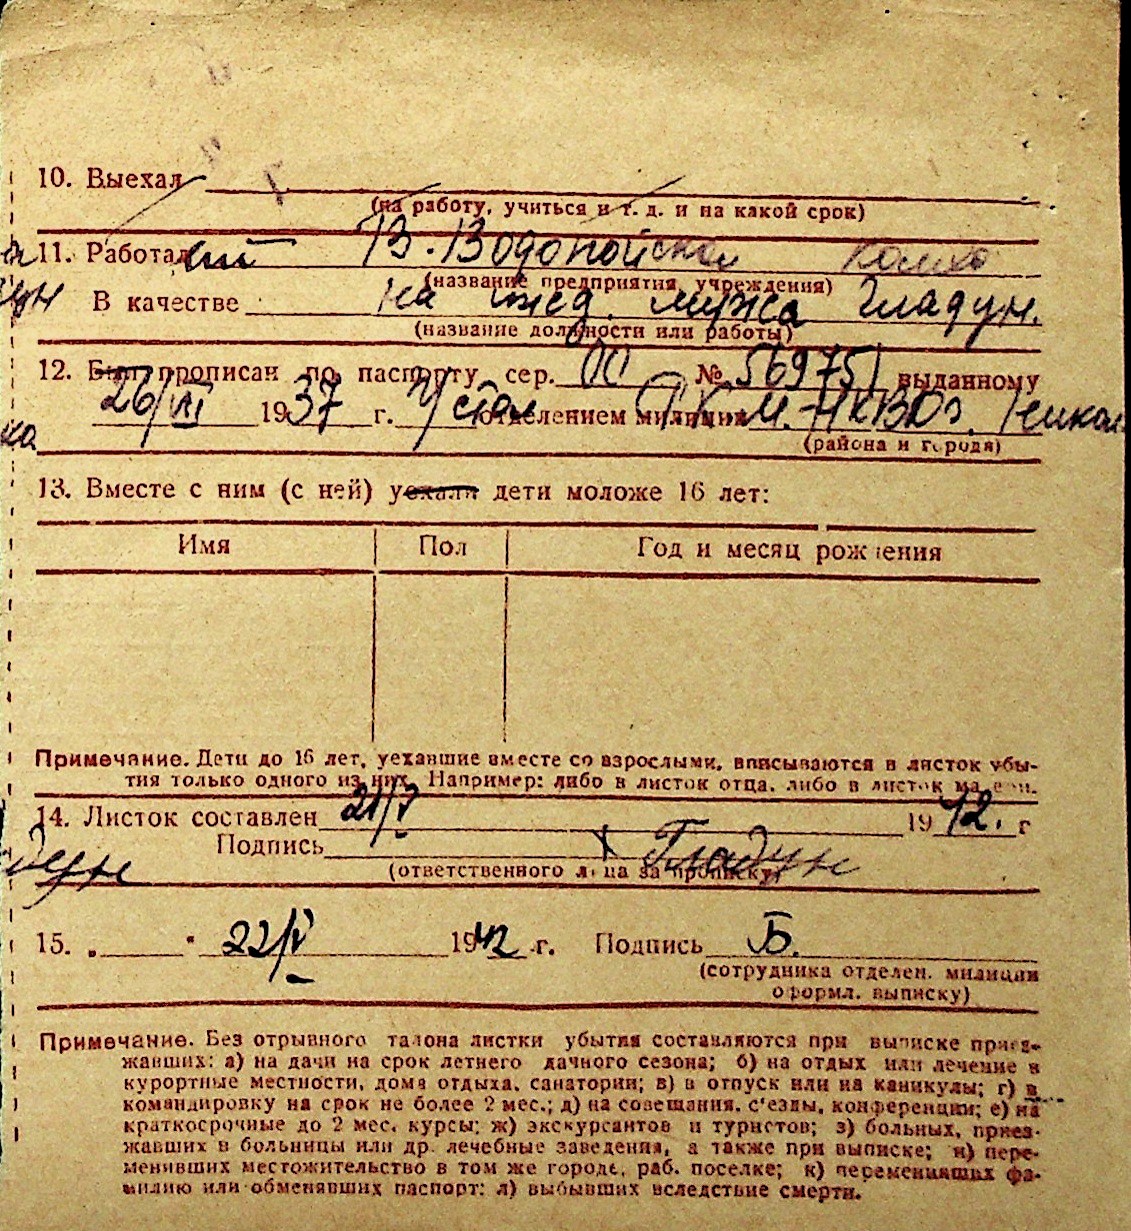 10. Выехал
(на работу, учиться и т. д. и на какой срок)
11. Работал
(название предприятия, учреждения)
В качестве на ижд. мужа Гладун.
(название должности или работы)
12. Был прописан по паспорту сер. № 569751 выданному
26/VII 1937 г. отделением милиции
(района и города)
13. Вместе с ним (с ней) уехали дети моложе 16 лет:
Имя Пол Год и месяц рождения
Примечание. Дети до 16 лет, уехавшие вместе со взрослыми, вписываются в листок убы-
тия только одного из них. Например: либо в листок отца, либо в листок матери.
14. Листок составлен 21/V 1942. г
Подпись Гладун
(ответственного лица за прописку)
15. „ " 22/V 1942 г. Подпись Б.
(сотрудника отделен. милиции
оформл. выписку)
Примечание. Без отрывного талона листки убытия составляются при выписке приез-
жавших: а) на дачи на срок летнего дачного сезона; б) на отдых или лечение в
курортные местности, дома отдыха, санатории; в) в отпуск или на каникулы; г) в
командировку на срок не более 2 мес.; д) на совещания, с'езды, конференции; е) на
краткосрочные до 2 мес. курсы; ж) экскурсантов и туристов; з) больных, приез-
жавших в больницы или др. лечебные заведения, а также при выписке; и) пере-
менивших местожительство в том же городе, раб. поселке; к) переменивших фа-
милию или обменявших паспорт; л) выбывших вследствие смерти.